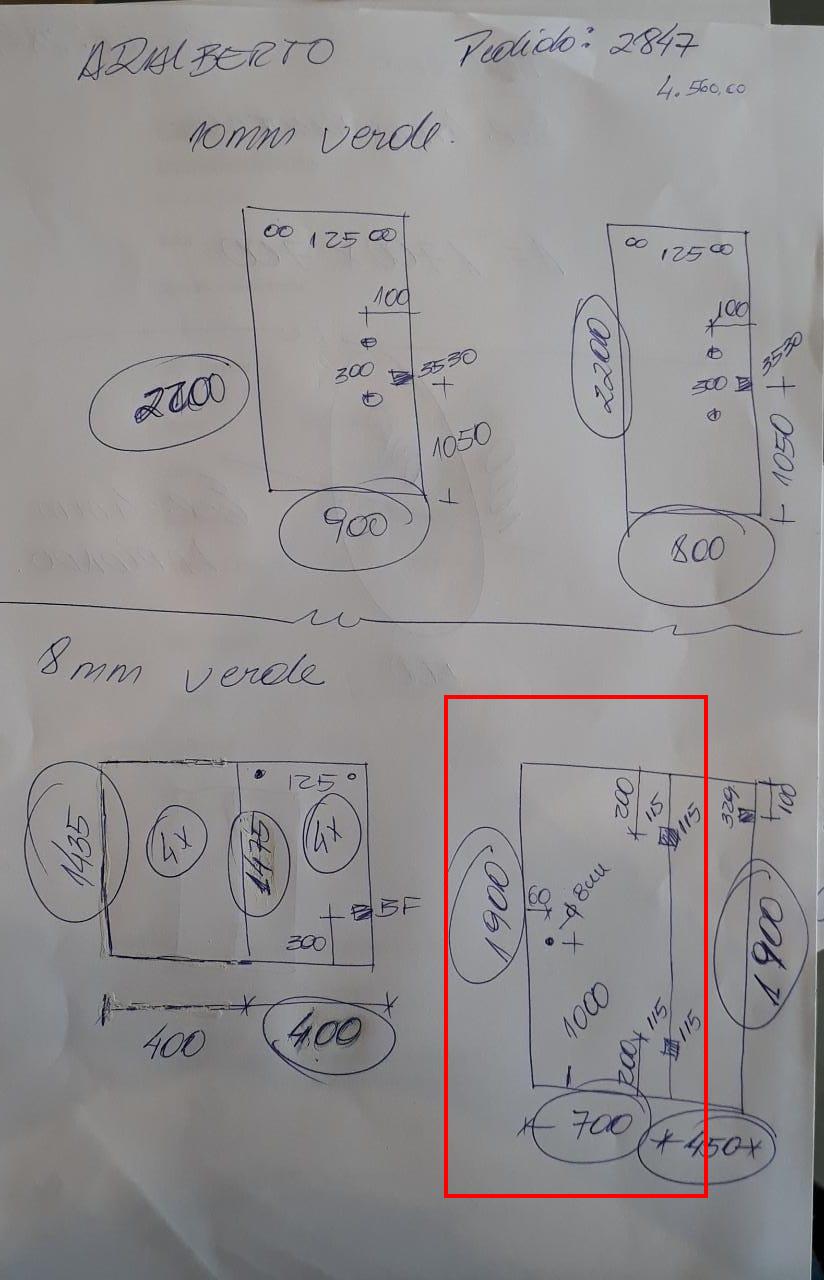 ADALBERTO Pedido: 2847
4.560,00
10mm verde.
125
100
300 3530
2200
1050
900
125
100
2200
300 3530
1050
800
8mm verde
125
1435 4x 1475 4x
BF
300
400 400
200 115 115 329 100
1900 60 φ8mm 1900
1000
200 115 115
700 450